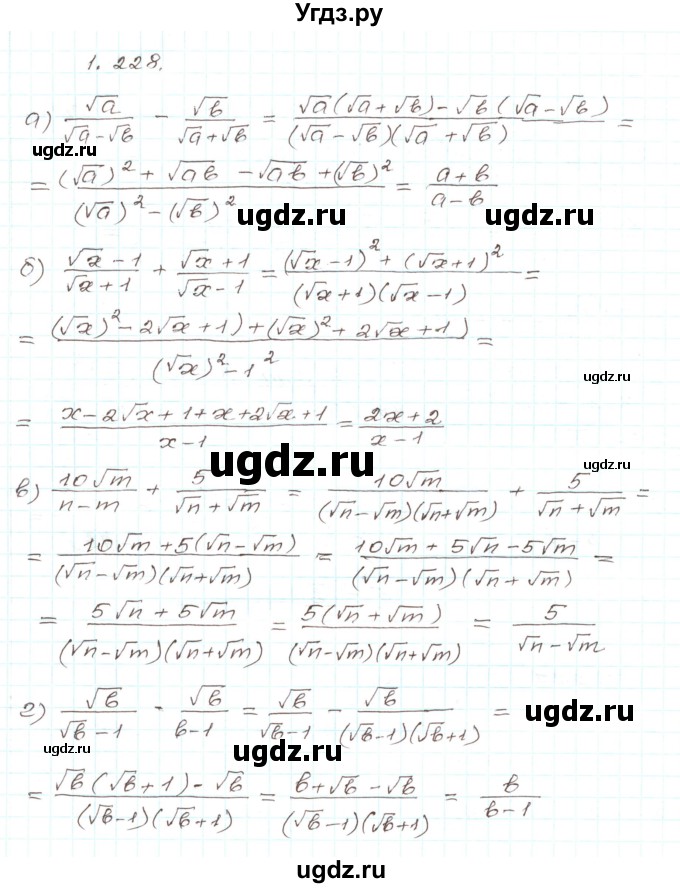 Угдз.ру
1. 228.
а) √a/(√a-√b) - √b/(√a+√b) = (√a(√a+√b)-√b(√a-√b))/((√a-√b)(√a+√b)) =
ugdz.ru
= ((√a)² + √ab - √ab + (√b)²)/((√a)² - (√b)²) = (a+b)/(a-b)
ugdz.ru
ugdz.ru
б) (√x-1)/(√x+1) + (√x+1)/(√x-1) = ((√x-1)² + (√x+1)²)/((√x+1)(√x-1)) =
= ((√x)² - 2√x + 1) + (√x)² + 2√x + 1)/((√x)² - 1²) =
ugdz.ru
= (x-2√x+1+x+2√x+1)/(x-1) = (2x+2)/(x-1)
ugdz.ru
ugdz.ru
в) 10√m/(n-m) + 5/(√n+√m) = 10√m/((√n-√m)(√n+√m)) + 5/(√n+√m) =
= (10√m+5(√n-√m))/((√n-√m)(√n+√m)) = (10√m+5√n-5√m)/((√n-√m)(√n+√m)) =
= (5√n+5√m)/((√n-√m)(√n+√m)) = 5(√n+√m)/((√n-√m)(√n+√m)) = 5/(√n-√m)
г) √b/(√b-1) - √b/(b-1) = √b/(√b-1) - √b/((√b-1)(√b+1)) =
ugdz.ru
ugdz.ru
ugdz.ru
= (√b(√b+1)-√b)/((√b-1)(√b+1)) = (b+√b-√b)/((√b-1)(√b+1)) = b/(b-1)
ugdz.ru